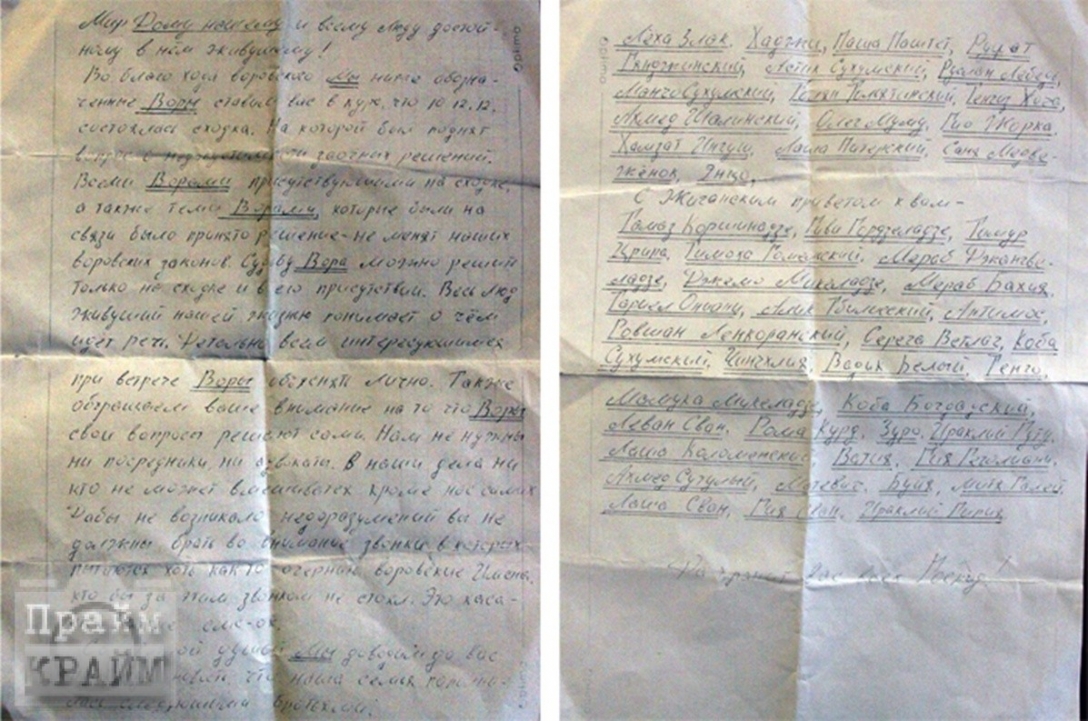 Мир Дому нашему и всему люду достой-
ному в нём живущему!
Во благо хода воровского Мы ниже обозна-
ченные Воры ставим вас в курс, что 10.12.12.
состоялась сходка. На которой был поднят
вопрос о недопустимости заочных решений.
Всеми Ворами присутствующими на сходке,
а также теми Ворами, которые были на
связи было принято решение - не менят наших
воровских законов. Судьбу Вора можно решит
только на сходке и в его присутствии. Весь люд
живущий нашей жизнью понимает о чём
идёт речь. Детально всем интересующимся
при встрече Воры объяснят лично. Также
обращаем ваше внимание на то что Воры
свои вопросы решают сами. Нам не нужны
ни посредники, ни адвокаты. В наши дела ни
кто не может вмешиватся кроме нас самих
Дабы не возникало недоразумений вы не
должны брать во внимание звонки в которых
пытаются хоть как то очернит воровские Имена,
кто бы за этим звонком не стоял. Это каса-
смс-ок.
душой Мы доводим до вас
что наша семья попол-
братьями.
Лёха Злак, Хаджи, Паша Паштет, Руфат
Гянджинский, Астик Сухумский, Руслан Лебедь,
Манчо Сухумский, Тенгиз Хобо,
Ахмед Шалинский, Олег Муму, Гио Жорка
Хамзат Ингуш, Лаша Питерский, Саня Медве-
жёнок, Янцо.
С Жиганским приветом к вам -
Тамаз Коршинадзе, Гиви Горделадзе, Тимур
Црипа, Тимоха Гомельский, Мераб Джангве-
ладзе, Джемо Микеладзе, Мераб Бахия,
Тариел Ониани, Алик Тбилисский, Антимос,
Ровшан Ленкоранский, Серёга Ветлаг, Коба
Сухумский, Чинчлия, Вадик Белый, Тенго,
Мамука Микеладзе, Коба Богданский,
Леван Сван, Рома Курд, Зуро, Ираклий Путу
Лаша Коломенский, Вахия, Гия
Ахмед Сутулый, Мацевич, Буйя, Митя Галей
Лаша Сван, Гия Сван, Ираклий Пипия
Да хранит Вас всех Господ!
Optima
Прайм
КРАЙМ